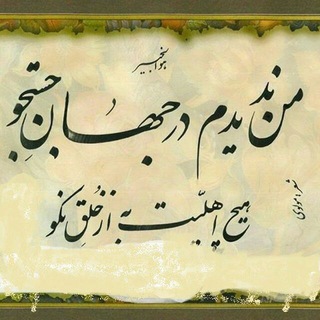 هوالخبیر
من ندیدم در جهانِ جستجو
هیچ اهلیّت به از خُلقِ نکو
شعر مولوی